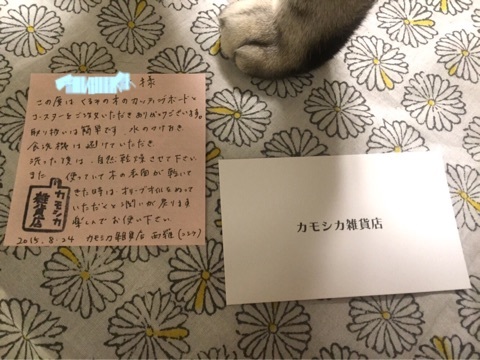 様
この度はくるみの木のカッティングボードと
コースターをご注文いただきありがとうございます。
取り扱いは簡単です 水のつけおき
食洗機は避けていただき
洗った後は、自然乾燥させて下さい
また 使っていて木の表面が乾いて
きた時は オリーブオイルをぬって
いただくと潤いが戻ります
楽しんでお使い下さい
カモシカ
雑貨店
2015.8.24 カモシカ雑貨店
カモシカ雑貨店